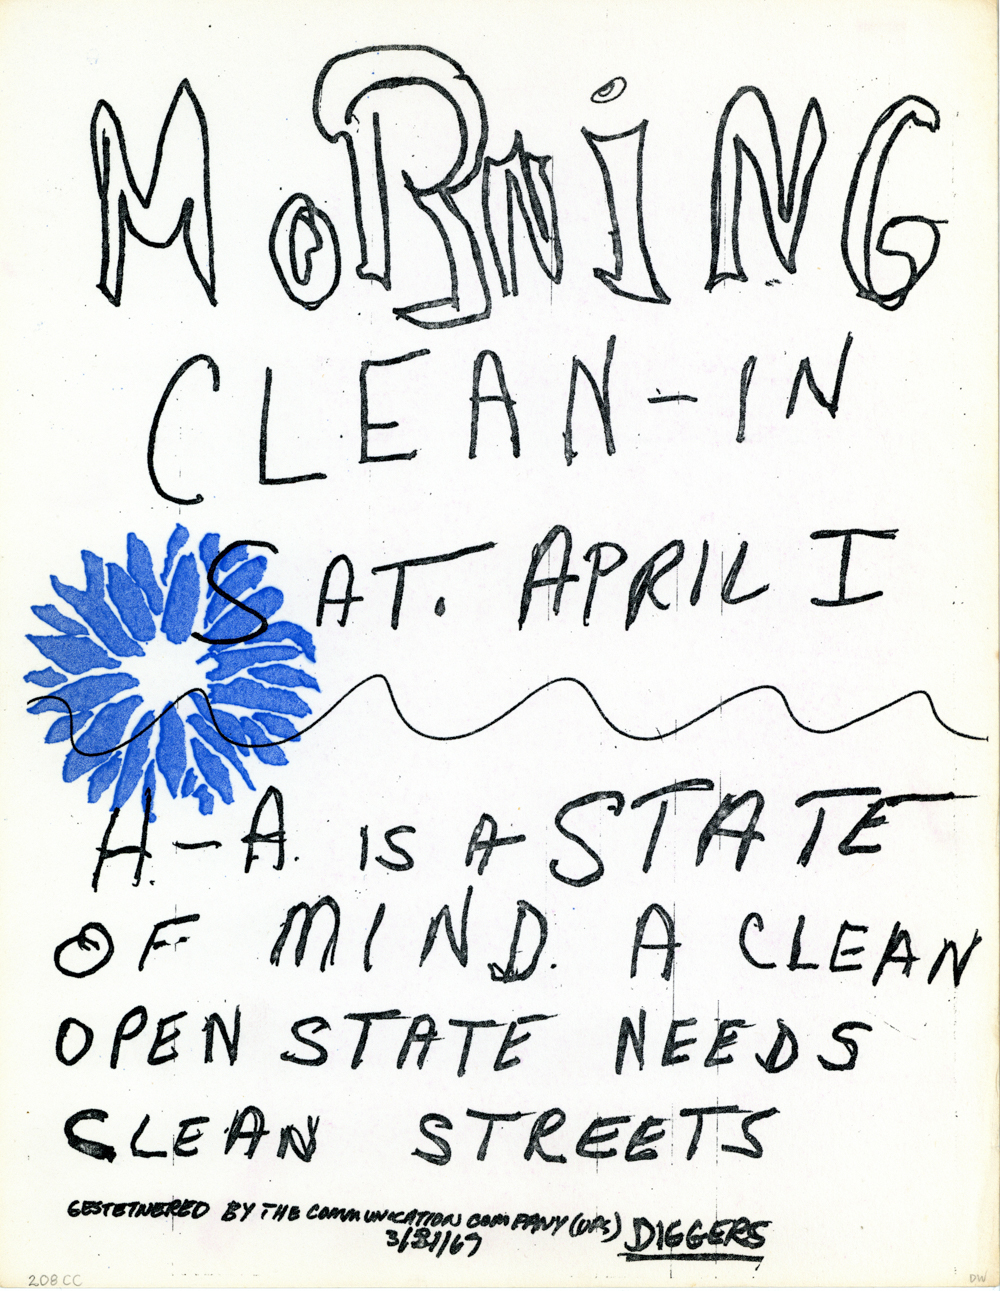 MoRNiNG
CLEAN-IN
SAT. APRIL I
H.-A. IS A STATE
OF MIND. A CLEAN
OPEN STATE NEEDS
CLEAN STREETS
GESTETNERED BY THE COMMUNICATION COMPANY (UPS) DIGGERS
3/31/67
208 CC
DW